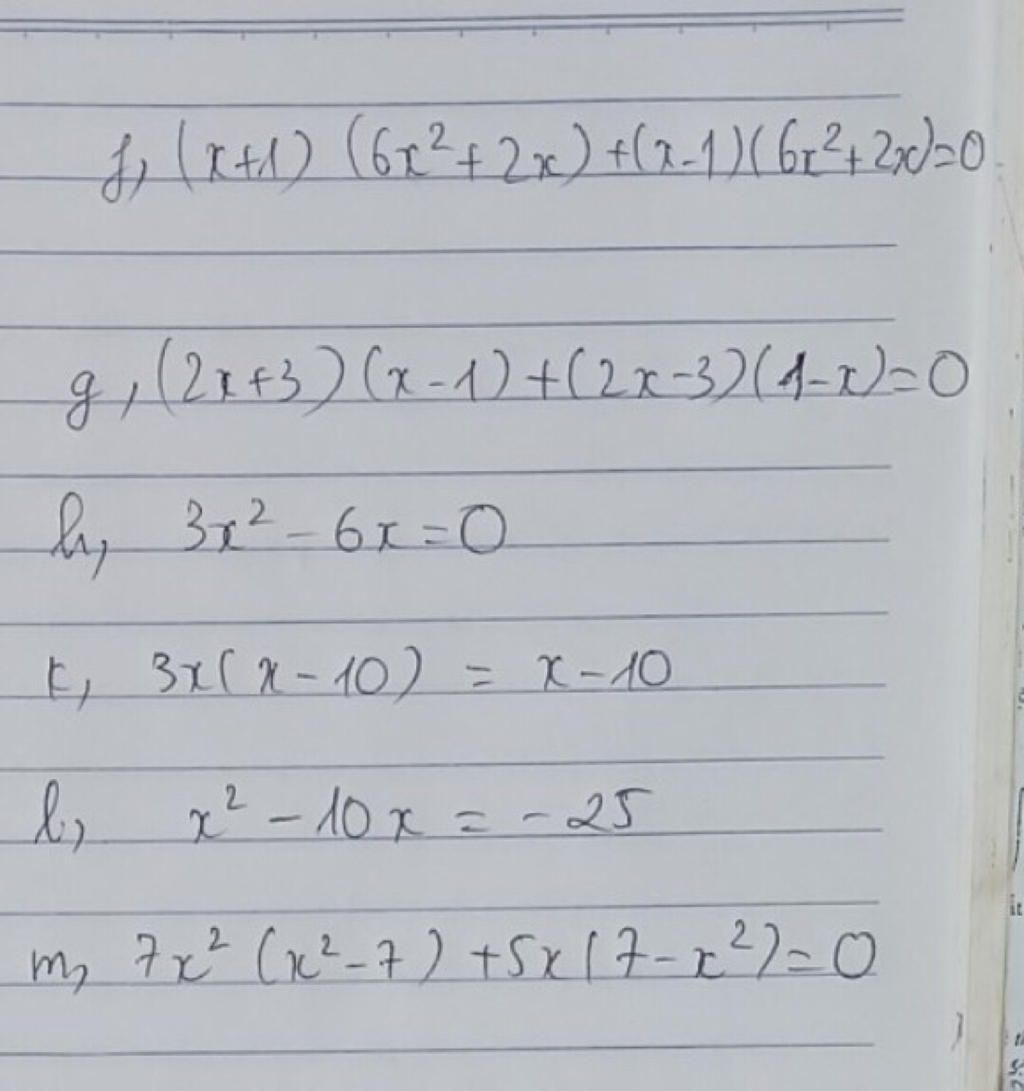 f, (x+1) (6x²+2x)+(x-1)(6x²+2x)=0
g, (2x+3)(x-1)+(2x-3)(1-x)=0
h, 3x²-6x=0
k, 3x(x-10) = x-10
l, x²-10x = -25
m, 7x² (x²-7) +5x(7-x²)=0